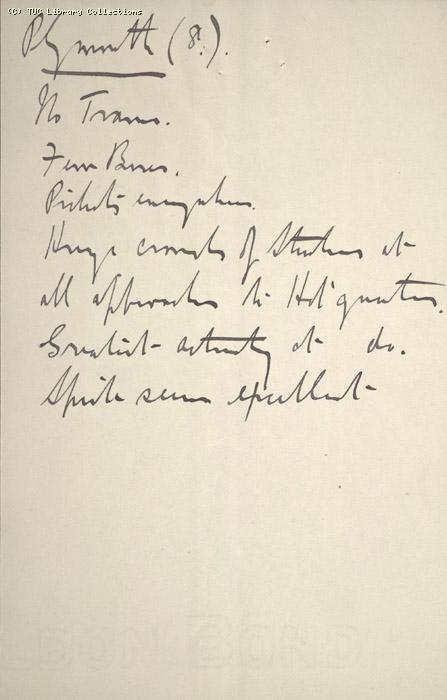 (C) TUC Library Collections
Plymouth (8.).
No Trams.
Few Buses.
Pickets everywhere.
Huge crowds of Strikers at
all approaches to Hdquarters.
Greatest activity at do.
Spirits seem excellent
BOND